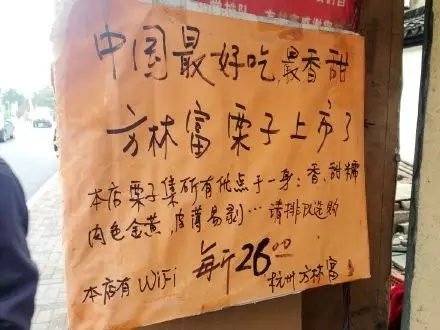 中国最好吃,最香甜
方林富栗子上市了
本店栗子集所有优点于一身:香、甜、糯
肉色金黄,皮薄易剥…请排队选购
每斤26.00
本店有WiFi
杭州方林富